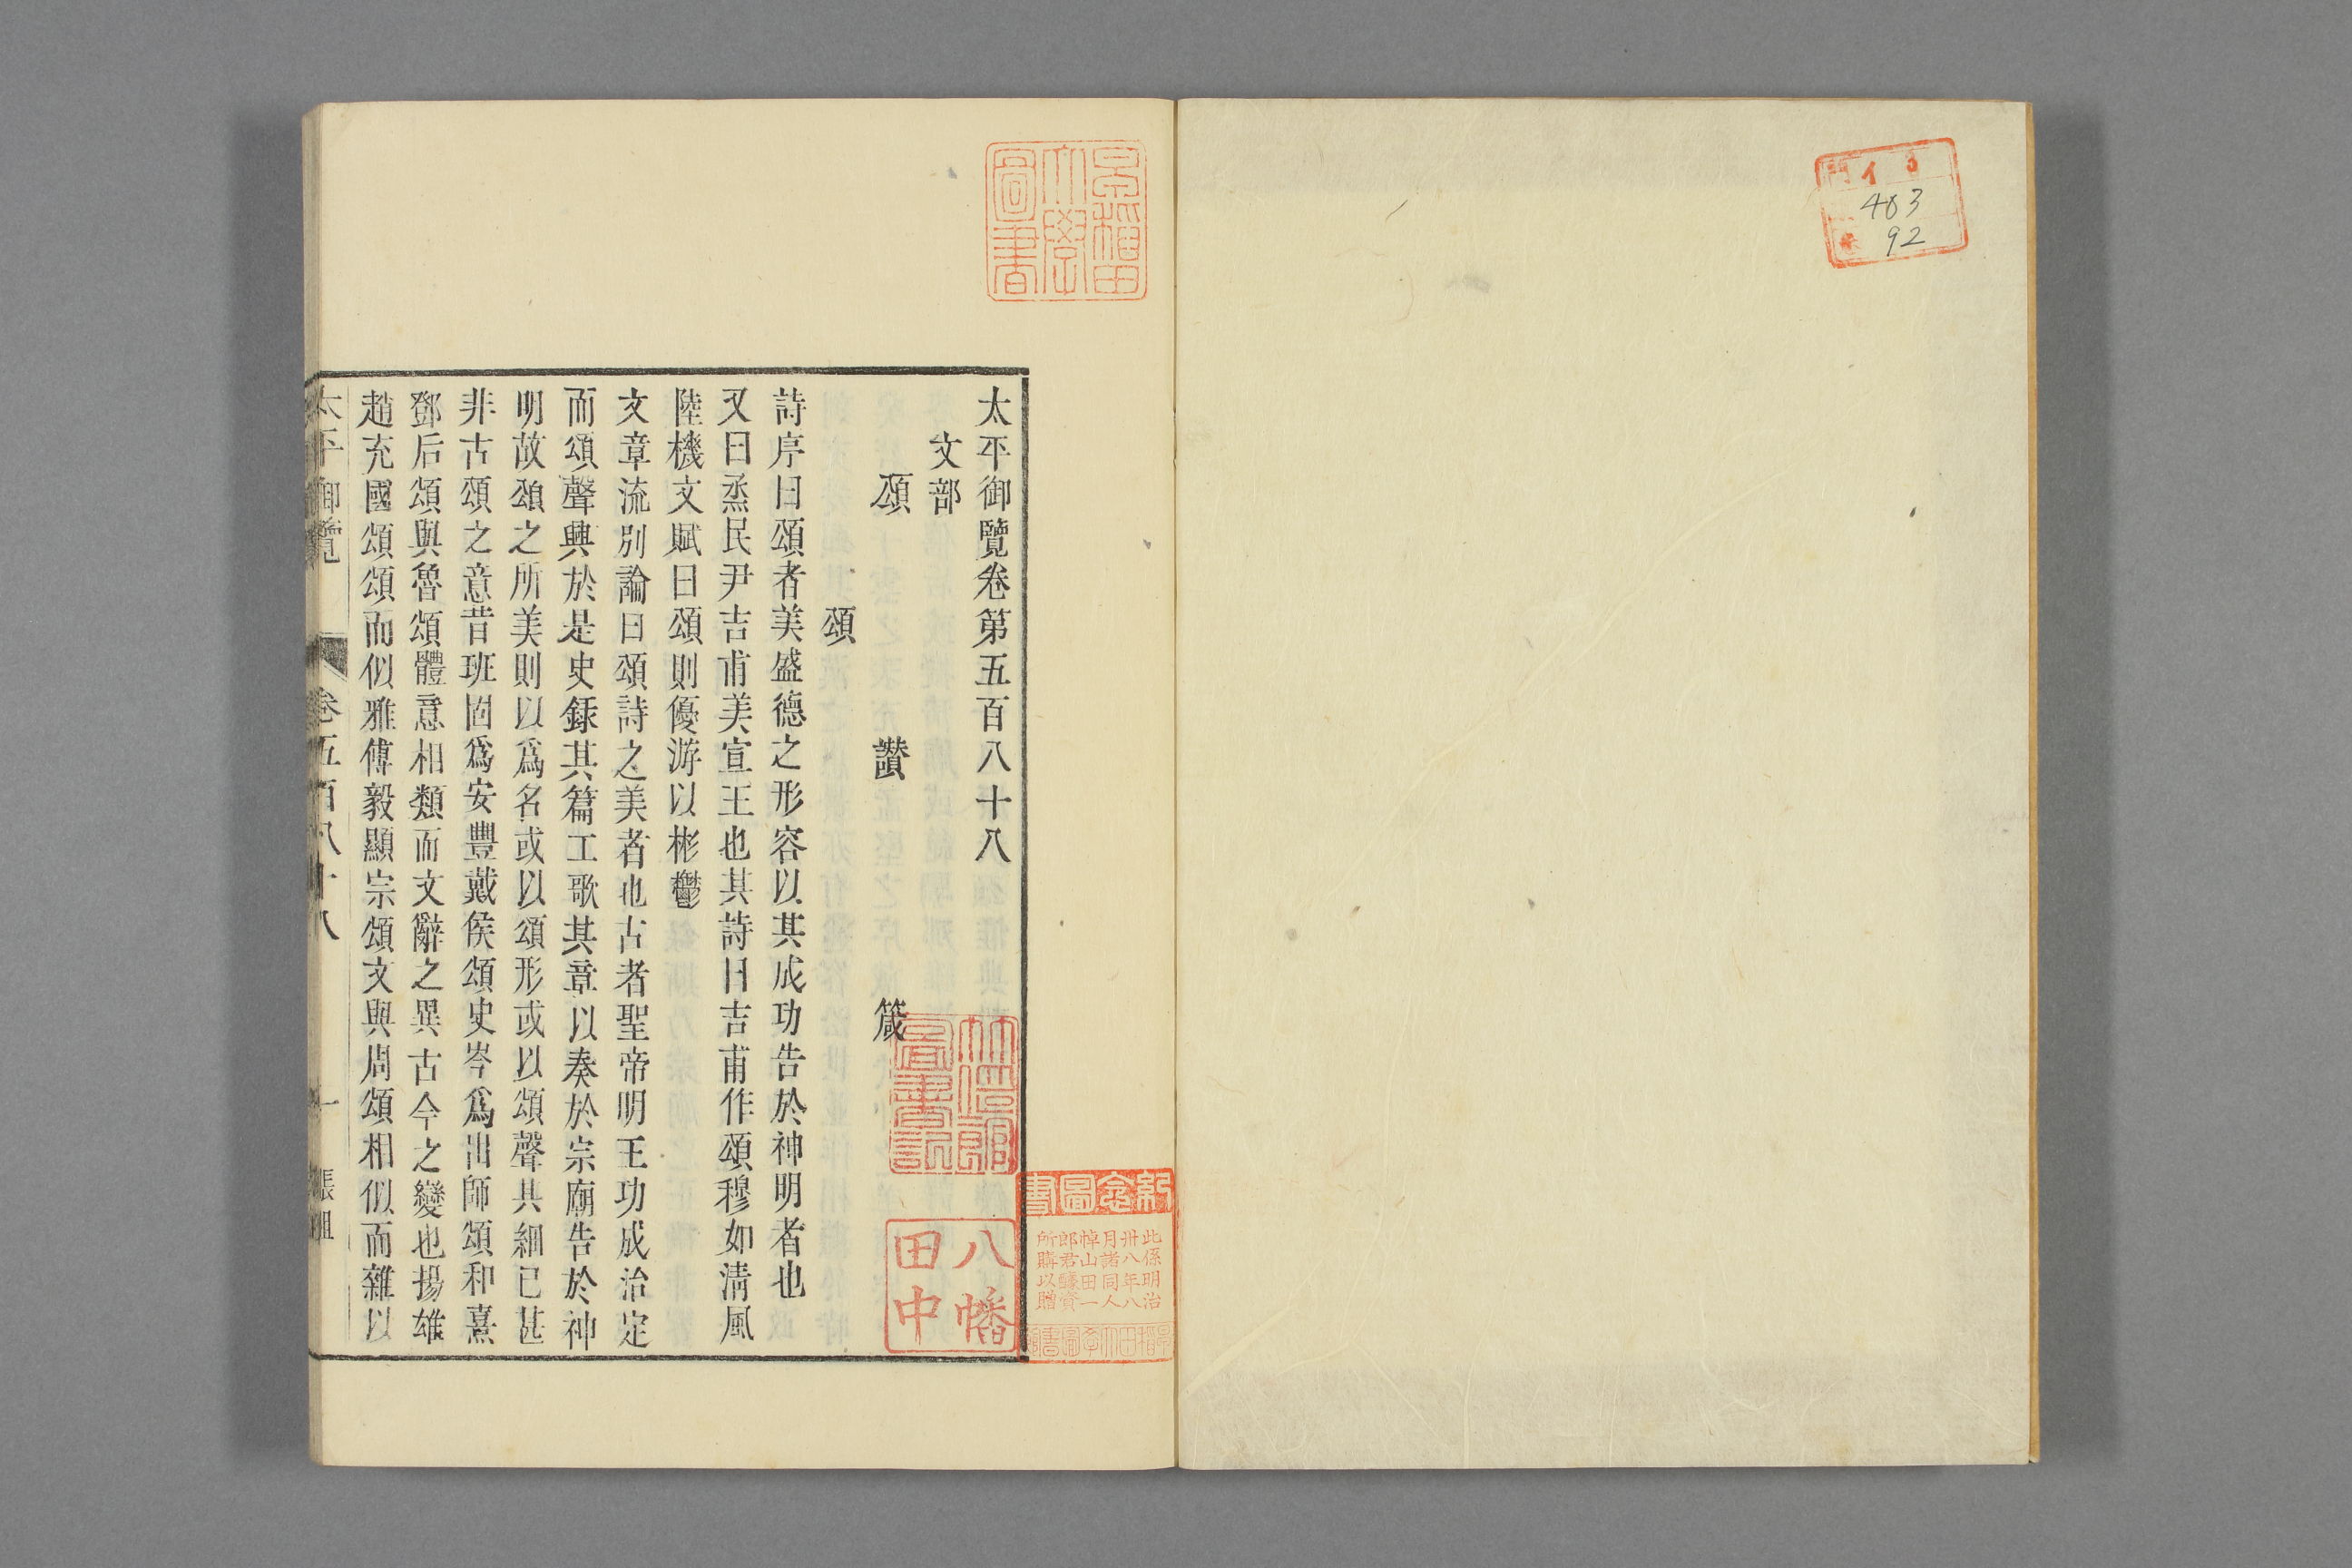 イ
403
92
早稲田大學圖書
太平御覽卷第五百八十八
文部
頌 讃 箴
頌
詩序曰頌者美盛德之形容以其成功告於神明者也
又曰烝民尹吉甫美宣王也其詩曰吉甫作頌穆如清風
陸機文賦曰頌則優游以彬鬱
文章流别論曰頌詩之美者也古者聖帝明王功成治定
而頌聲興於是史録其篇工歌其章以奏於宗廟告於神
明故頌之所美則以爲名或以頌形或以頌聲其細已甚
非古頌之意昔班固爲安豐戴侯頌史岑爲出師頌和熹
鄧后頌與魯頌體意相類而文辭之異古今之變也揚雄
趙充國頌頌而似雅傅毅顯宗頌文與周頌相似而雜以
太平御覽 卷五百八十八 一
八幡
田中
紀念圖書
此係明治
卅八年八
月諸同人
悼山田一
郎君醵資
所購以贈
早稲田大學圖書館